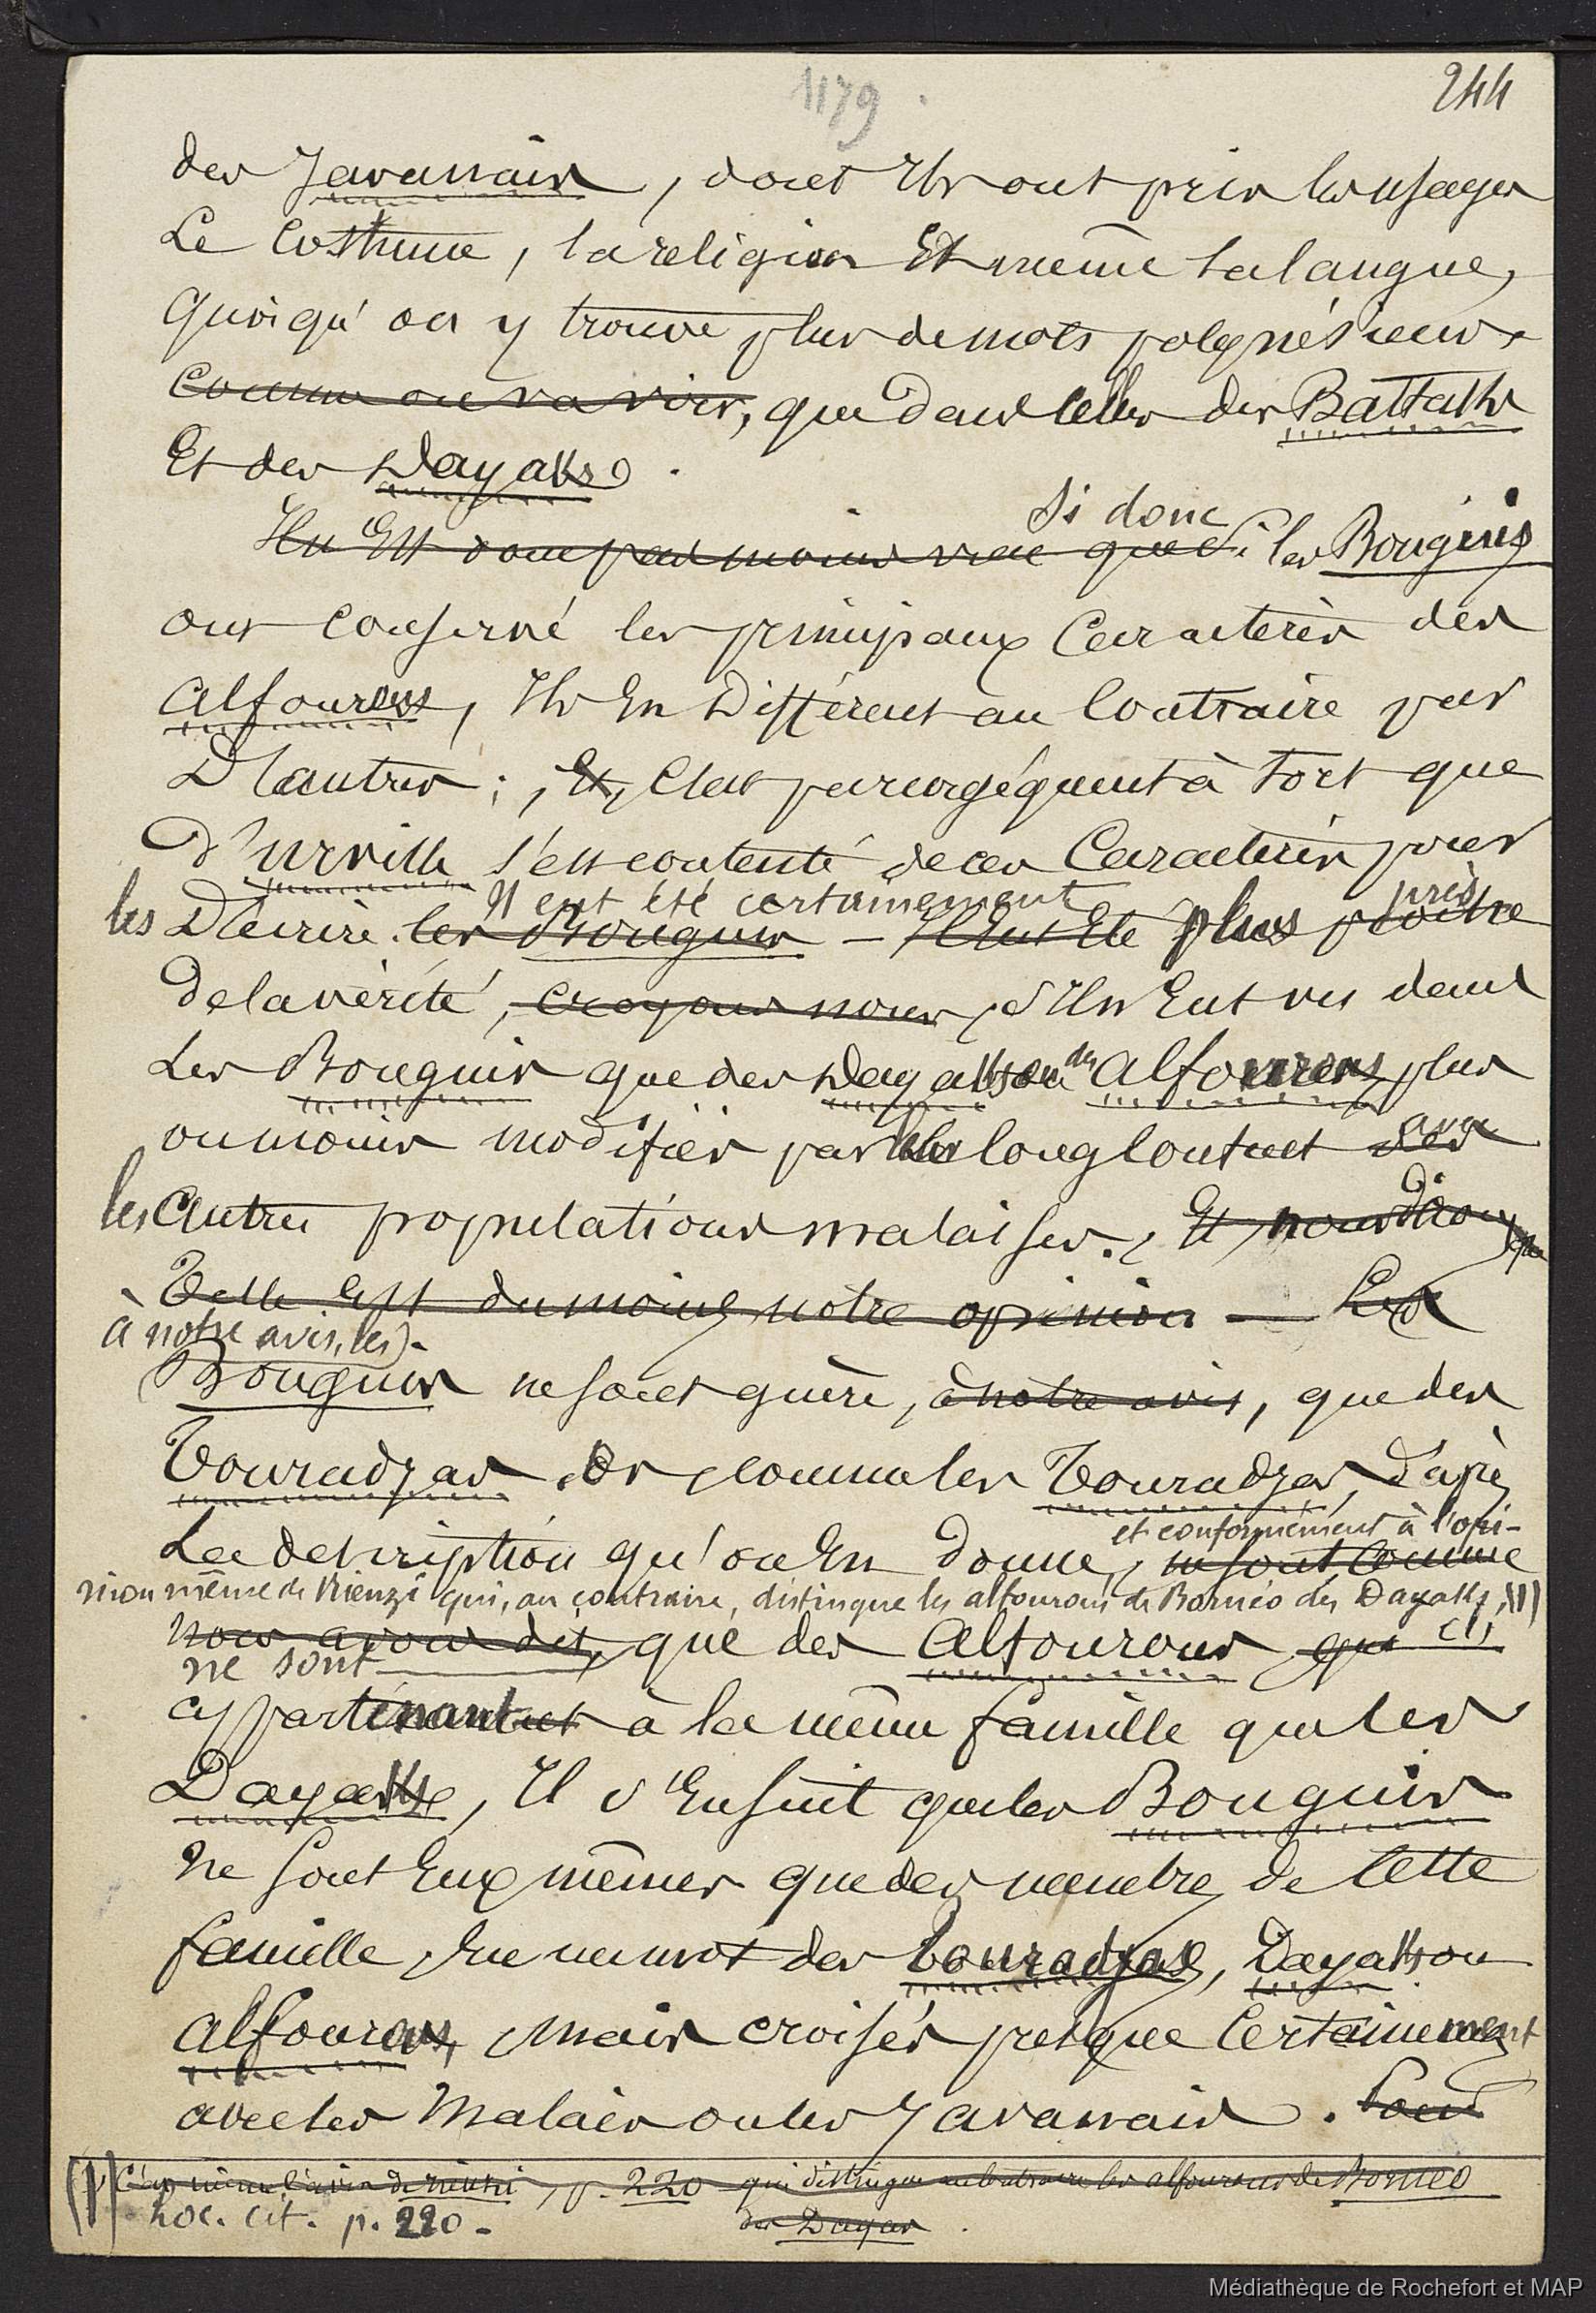 1179.
244
des Javanais, dont Ils ont pris les usages
Le Costume, la religion Et même la langue,
quoiqu'on y trouve plus de mots polynésiens,
comme on va voir, que dans celles des Battaks
Et des Dayaks.
Si donc
Il n'Est donc pas moins vrai que Si les Bouguis
ont conservé les principaux Caractères des
alfourous, Ils En Diffèrent au Contraire par
D'autres ; , Et, C'est par conséquent à tort que
d'urville s'est contenté de ces Caractères pour
Il eut été certainement près
les Décrire les Bouguis – Il Eut Eté plus proche
De la vérité, croyons nous, s'Il n'Eut vu dans
Les Bouguis que des Dayaks ou des alfourous plus
ou moins modifiés par le long Contact des avec
les Autres populations malaises. Et nous dirons que
Telle Est du moins notre opinion — Les
à notre avis, les
Bouguis ne sont guère, à notre avis, que des
Touradjas. Or comme les Touradjas, D'après
La description qu'on En donne, ne sont, Comme
et conformément à l'opi-
nion même de Rienzi qui, au contraire, distingue les alfourous de Bornéo des Dayaks, (1)
nous avons dit, que des Alfourous qui
ne sont
appartenant à la même famille que les
Dayaks, Il s'Ensuit que les Bouguis
Ne sont Eux mêmes que des membres de Cette
famille, En un mot des Touradjas, Dayaks ou
Alfourous, mais croisés presque Certainement
avec les Malais ou les Javanais. Tout
(1) C'est même l'avis de Rienzi, p. 220 qui distingue au contraire les alfourous de Bornéo
des Dayas.
Loc. cit. p. 220.-
Médiathèque de Rochefort et MAP